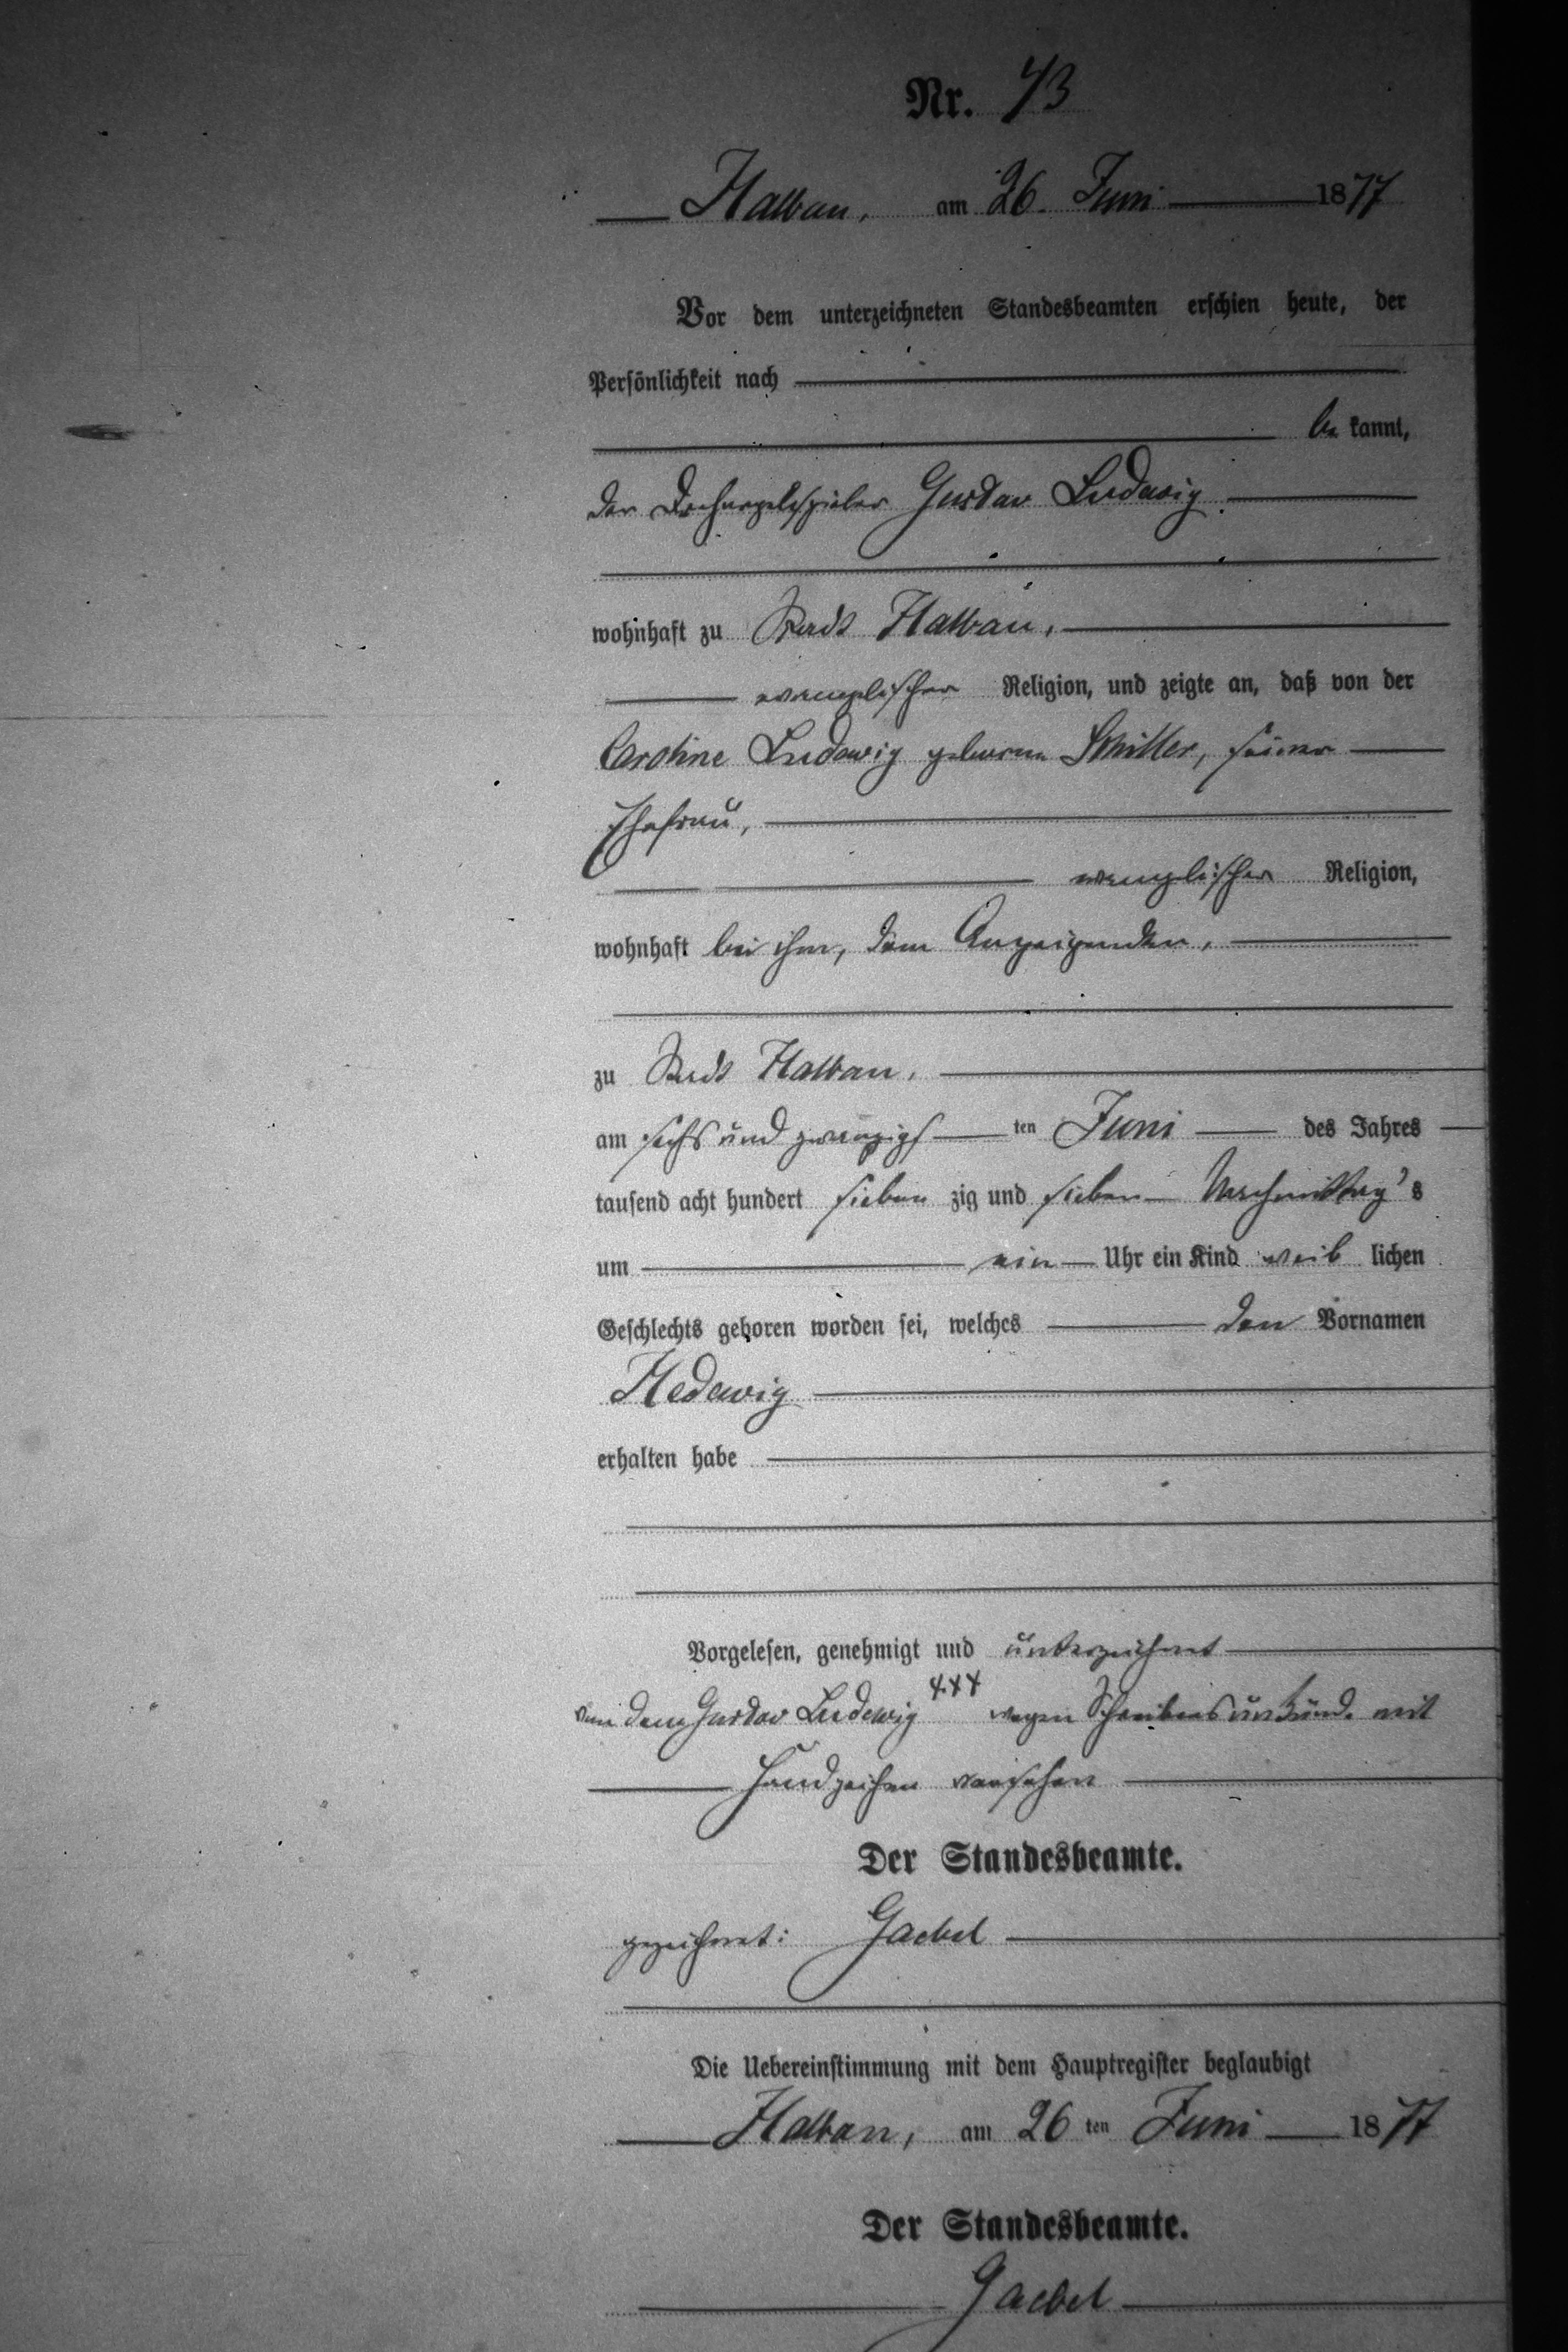 Nr. 43
Halbau, am 26. Juni 1877
Vor dem unterzeichneten Standesbeamten erschien heute, der
Persönlichkeit nach
be kannt,
der Drehorgelspieler Gustav Ludewig
wohnhaft zu Stadt Halbau,
evangelischer Religion, und zeigte an, daß von der
Caroline Ludewig geborene Schiller, seiner
Ehefrau,
evangelischer Religion,
wohnhaft bei ihm, dem Anzeigenden,
zu Stadt Halbau,
am sechs und zwanzigs ten Juni des Jahres
tausend acht hundert sieben zig und sieben Nachmittag's
um ein Uhr ein Kind weib lichen
Geschlechts geboren worden sei, welches den Vornamen
Hedewig
erhalten habe
Vorgelesen, genehmigt und unterzeichnet
von dem Gustav Ludewig +++ wegen Schreibensunkund. mit
Handzeichen versehen
Der Standesbeamte.
gezeichnet: Gaebel
Die Uebereinstimmung mit dem Hauptregister beglaubigt
Halbau, am 26 ten Juni 1877
Der Standesbeamte.
Gaebel